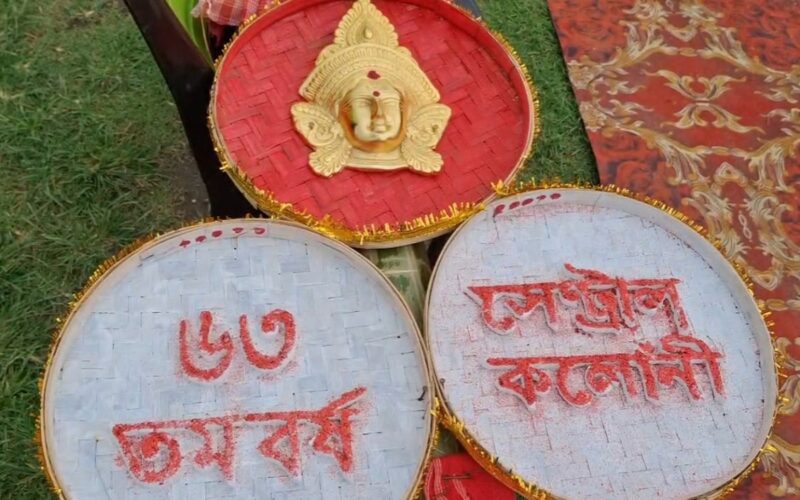 ৬৩
তম বর্ষ
সেন্ট্রাল
কলোনী